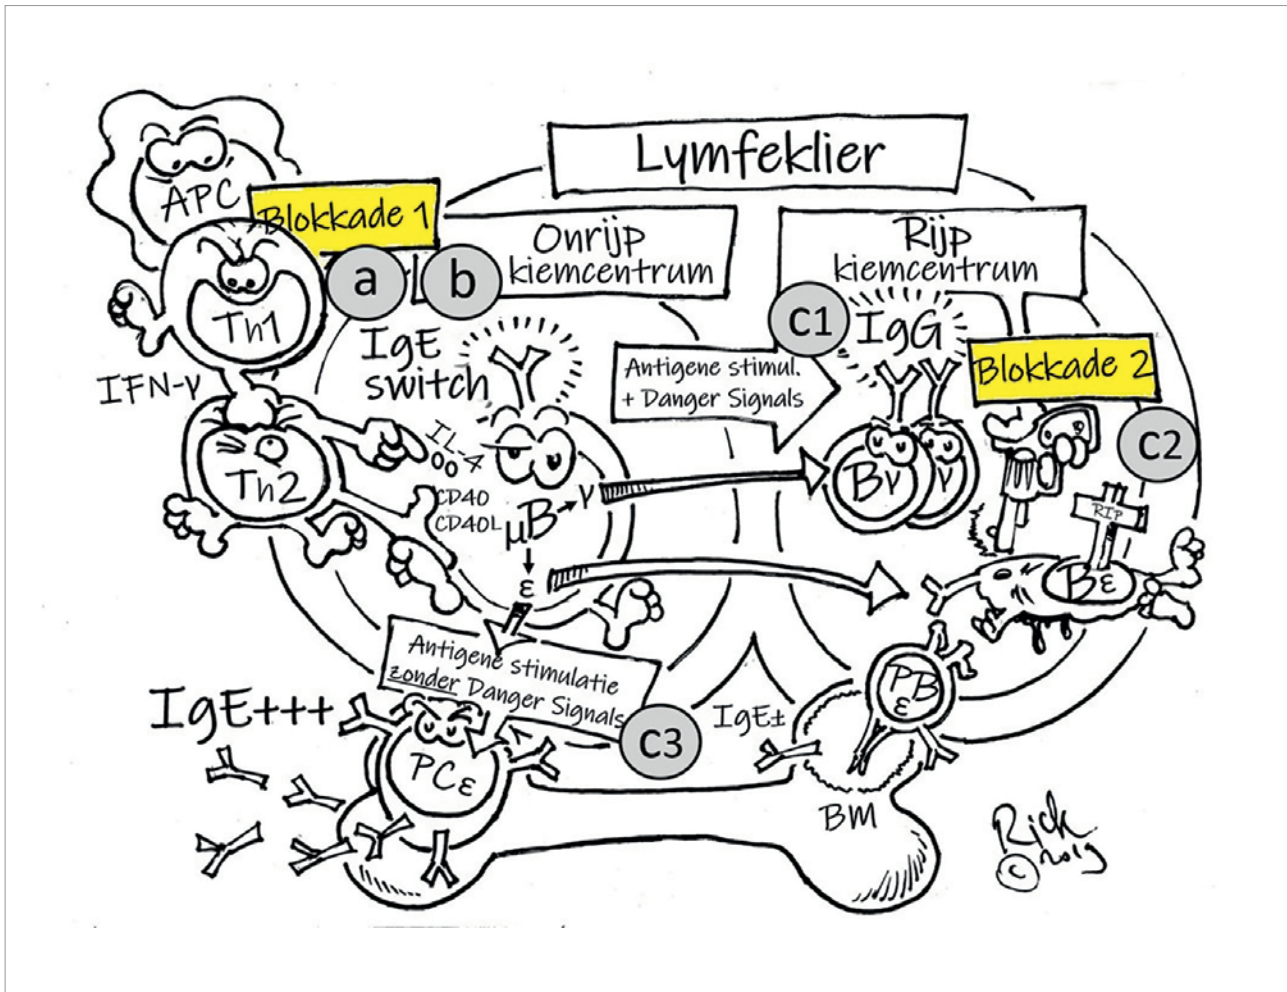 Lymfeklier
APC
Blokkade 1
Onrijp
kiemcentrum
Rijp
kiemcentrum
a
b
c1
Th1
IgE
switch
IgG
Antigene stimul.
+ Danger Signals
Blokkade 2
IFN-γ
IL-4
c2
Th2
CD40
CD40L
μB
γ
Bγ
γ
RIP
ε
Bε
Antigene stimulatie
zonder Danger Signals
IgE+++
c3
IgE±
PB
ε
PCε
BM
Rick
© 2019